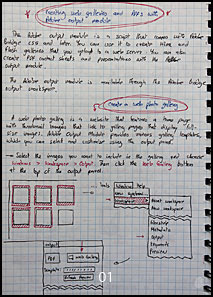 Creating web galleries and PDFs with
Adobe output module
The Adobe output module is a script that comes with Adobe
Bridge CS5 and later. You can use it to create HTML and
Flash galleries that you upload to a web server. You can also
create PDF contact sheets and presentations with the Adobe
output module.
The Adobe output module is available through the Adobe Bridge
output workspace.
Create a web photo gallery
A web photo gallery is a website that features a home page
with thumbnail images that link to gallery pages that display full-
size images. Adobe Output Module provides various gallery templates,
which you can select and customise using the output panel.
→ Select the images you want to include in the gallery and choose
Window > Workspace > Output. Then click the Web Gallery button
at the top of the output panel.
Tools
Window Help
New
Workspace
Reset workspace
New workspace
Metadata
Output
Keywords
Preview
Output
PDF
Web Gallery
Template:
Refresh Preview
01